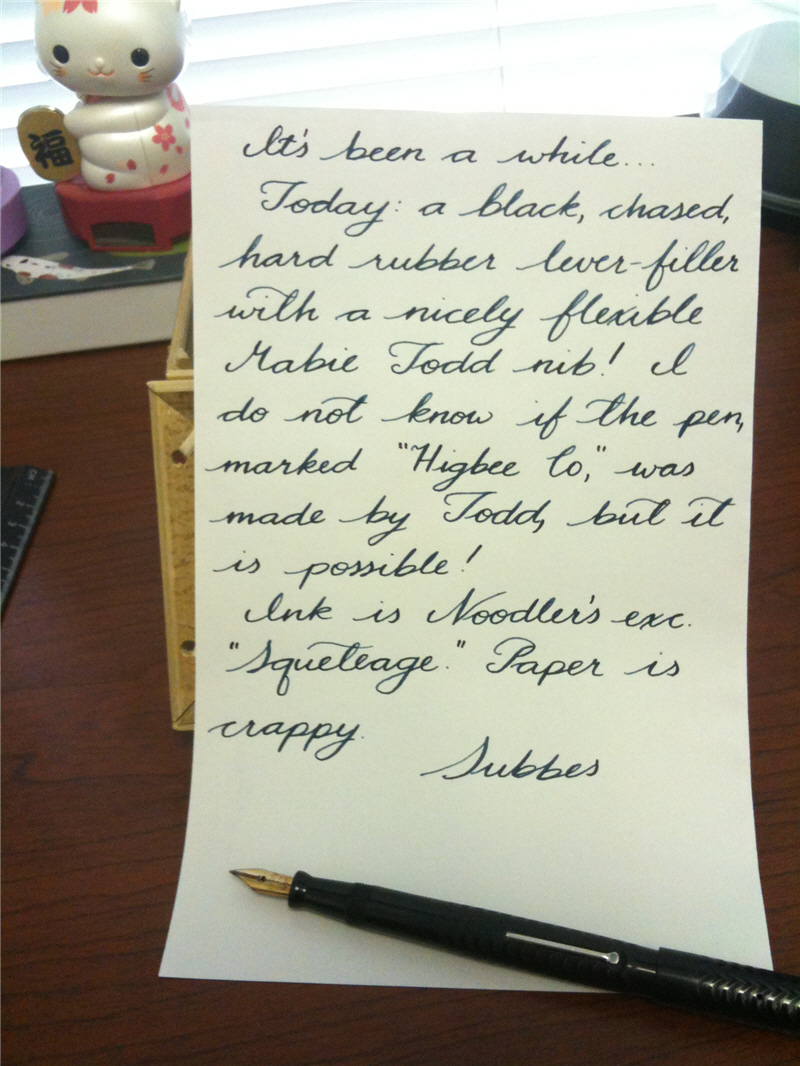 福
It's been a while...
Today: a black, chased,
hard rubber lever-filler
with a nicely flexible
Mabie Todd nib! I
do not know if the pen,
marked "Higbee Co," was
made by Todd, but it
is possible!
Ink is Noodler's exc.
"Squeteage." Paper is
crappy.
Subbes